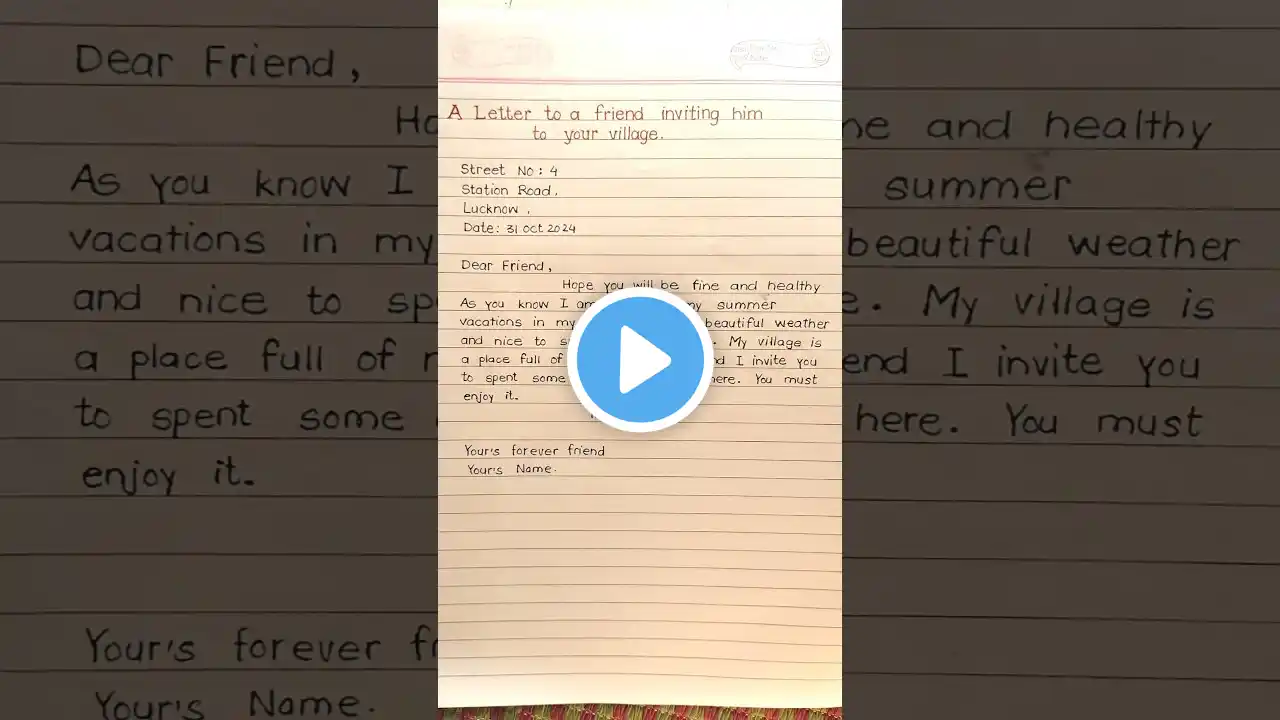 A Letter to a friend inviting him
to your village.
Street No: 4
Station Road,
Lucknow,
Date: 31 oct 2024
Dear Friend,
Hope you will be fine and healthy
As you know I am my summer
vacations in my beautiful weather
and nice to My village is
a place full of I invite you
to spent some here. You must
enjoy it.
Your's forever friend
Your's Name.
Dear Friend,
and healthy
As you know I summer
vacations in my beautiful weather
and nice to My village is
a place full of I invite you
to spent some here. You must
enjoy it.
Your's forever
Your's Name.